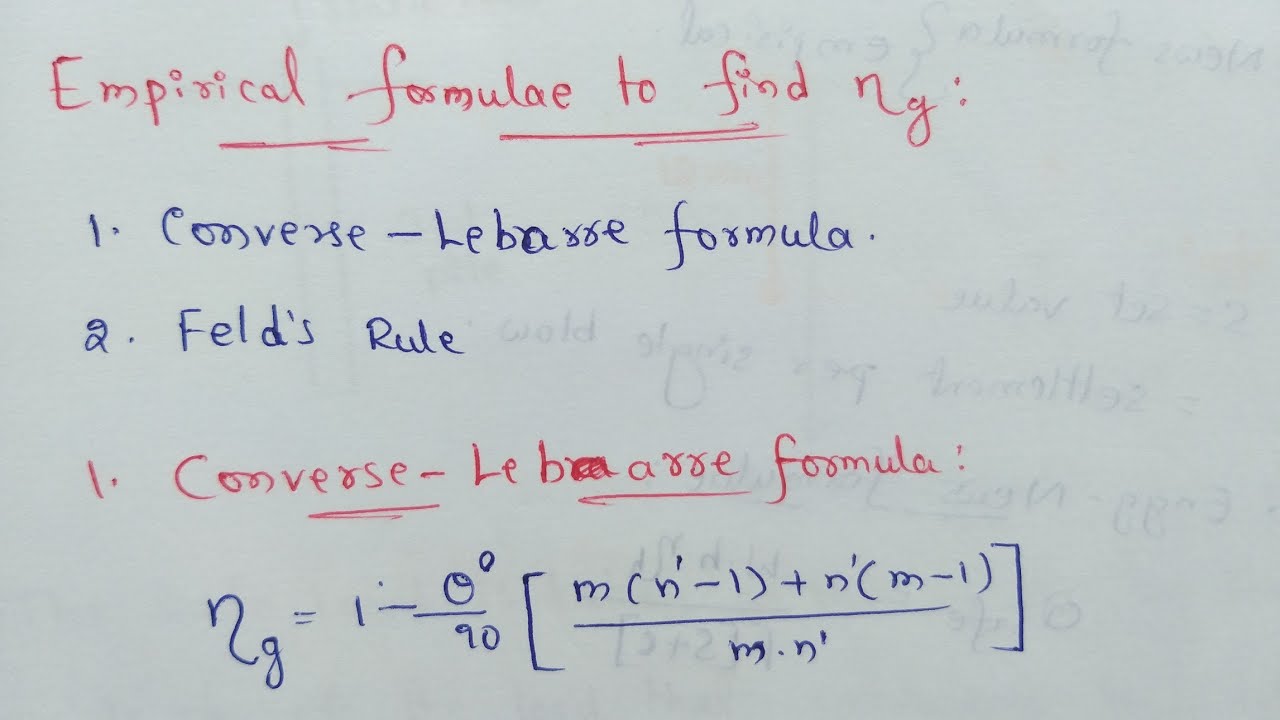 Empirical formulae to find ηg:
1. Converse - Lebarre formula.
2. Feld's Rule
1. Converse - Lebarre formula:
ηg = 1 - θ°/90 [ m(n'-1) + n'(m-1) / m.n' ]